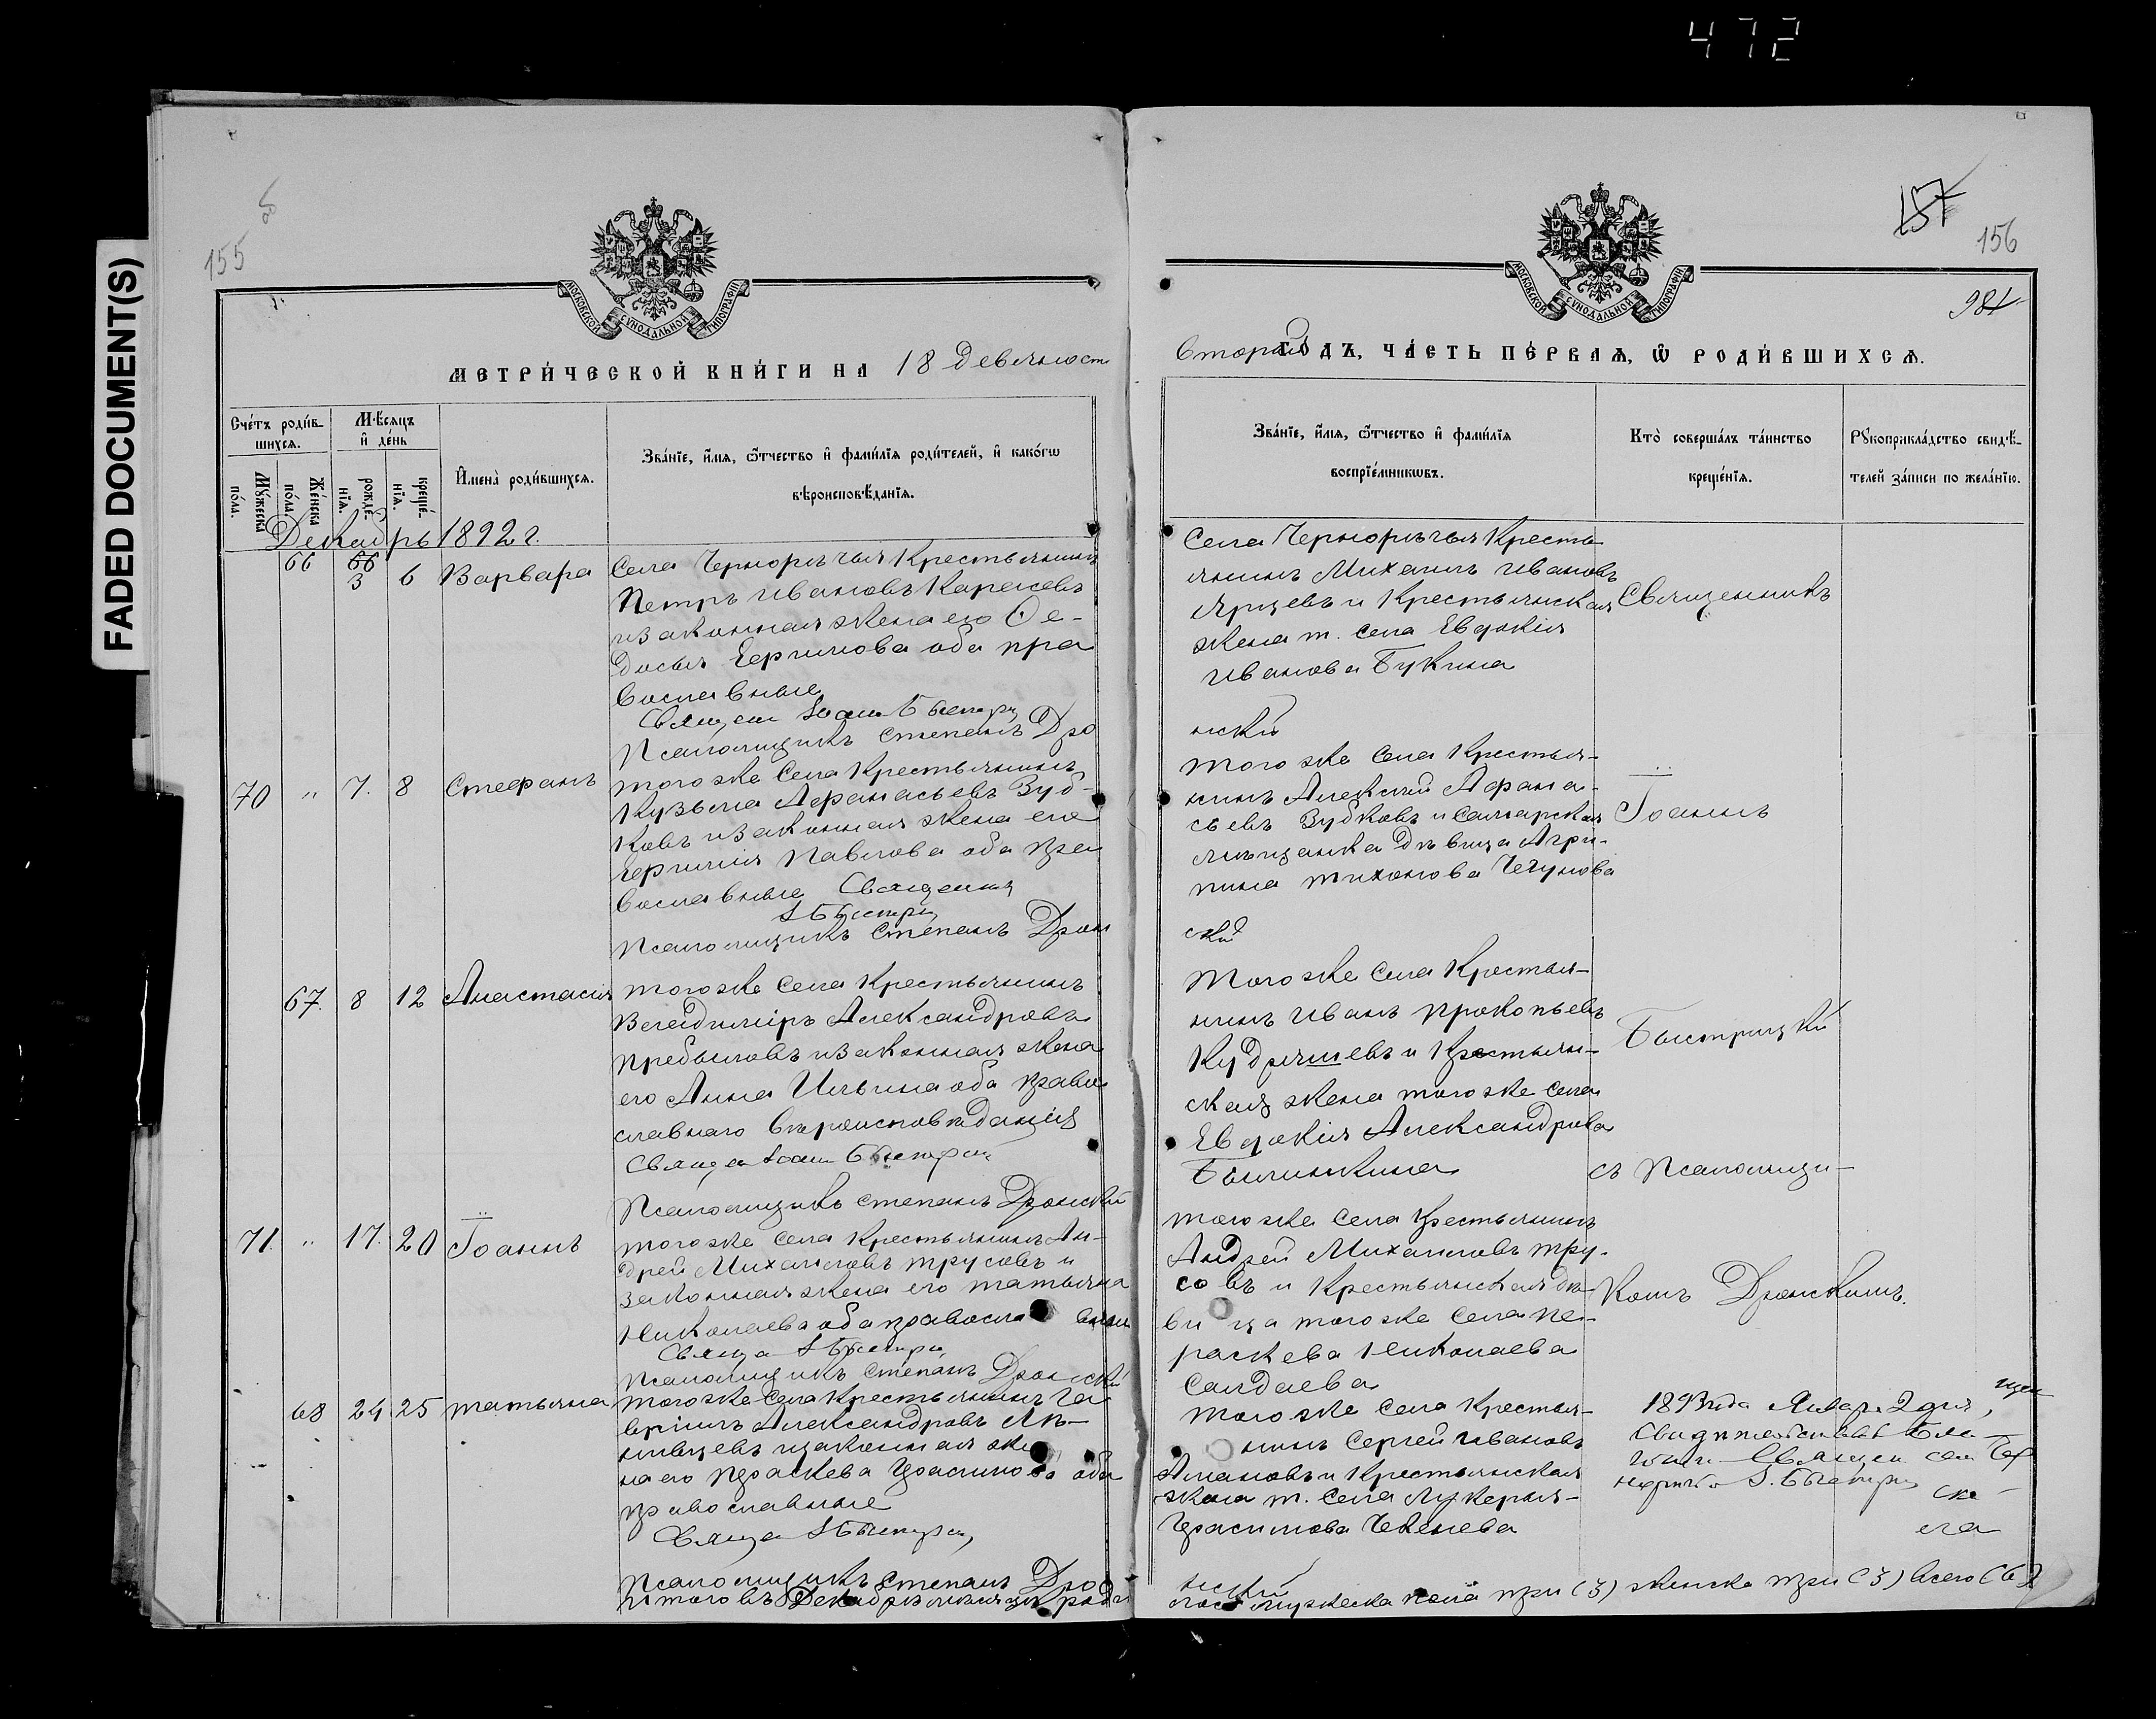 472
FADED DOCUMENT(S)
155
МОСКОВСКОЙ СѴНОДАЛЬНОЙ ТИПОГРАФІИ
МЕТРИ́ЧЕСКОЙ КНИ́ГИ НА 18 Девяност
Сче́тъ роди́в-
шихсѧ.
Мѣ́сѧцъ
и҆ де́нь
Му́жеска
по́ла.
Же́нска
по́ла.
рожде́-
нїѧ.
креще́-
нїѧ.
И҆мена̀ роди́вшихсѧ.
Зва́нїе, и҆́мѧ, ѻ҆́тчество и҆ фами́лїѧ роди́телей, и҆ како́гѡ
вѣроисповѣ́данїѧ.
Декабрь 1892 г.
66 66 3 6 Варвара
Села Черноречья Крестьянинъ
Петръ Ивановъ Карсевъ
и законная жена его Ѳе-
досья Ефимова оба пра
вославные
Священ Іоан Быстри
Псаломщикъ Степанъ Дро
70 " 7. 8 Стефанъ
того же села Крестьянинъ
Кузьма Афанасьевъ Зуб-
ковъ и законная жена его
Ефимія Павлова оба пра
вославные Священник
І Быстри
Псаломщикъ Степанъ Дрон
67. 8 12 Анастасія
того же села Крестьянинъ
Владиміръ Александровъ
Прибыловъ и законная жена
его Анна Ильина оба право
славнаго вѣроисповѣданія
Священ Іоан Быстри
Псаломщикъ Степанъ Дронскій
71. " 17. 20 Іоаннъ
того же села Крестьянинъ Ан-
дрей Михайловъ Трусовъ и
законная жена его Татьяна
Николаева оба православ вные
Свяще І Быстри
Псаломщикъ Степанъ Дронскій
68 24 25 Татьяна
того же села Крестьянинъ Га
вріилъ Александровъ
и законная же
на его Праскева Герасимова оба
православные
Свяще І Быстри
Псаломщикъ Степанъ Дро
Итого въ Декабрѣ мѣсяцѣ роди
157
156
981
МОСКОВСКОЙ СѴНОДАЛЬНОЙ ТИПОГРАФІИ
второй ГО́ДЪ, ЧА́СТЬ ПЕ́РВАѦ, Ѡ҆ РОДИ́ВШИХСѦ.
Зва́нїе, и҆́мѧ, ѻ҆́тчество и҆ фами́лїѧ
воспрїе́мникѡвъ.
Кто̀ соверша́лъ та́инство
креще́нїѧ.
Рꙋкоприкла́дство свидѣ́-
телей за́писи по жела́нїю.
Села Черноречья Кресть
янинъ Михаилъ Ивановъ
Ярцевъ и Крестьянская
жена т. села Евдокія
Иванова Букина
нскій
того же села Крестья-
нинъ Алексѣй Афана-
сьевъ Зубковъ и Самарская
мѣщанка Дѣвица Агри-
пина Тихонова Чечунова
скій
Того же села Крестья-
нинъ Иванъ Прокопьевъ
Кудряшевъ и Крестьян-
ская жена того же села
Евдокія Александрова
Былинкина
того же села Крестьянинъ
Андрей Михайловъ Тру-
совъ и Крестьянская дѣ-
вица того же села Пе-
раскева Николаева
Салдаева
того же села Крестья-
нинъ Сергей Ивановъ
Алмановъ и Крестьянская
жена т. села Лукерья
Герасимова Чекенева
нскій
лось мужеска пола три (3) женска три (3) всего (6)
Священникъ
Іоаннъ
Быстрицкій
съ Псаломщи-
комъ Дронскимъ.
1893 года Января 2 дня,
І. Быстри